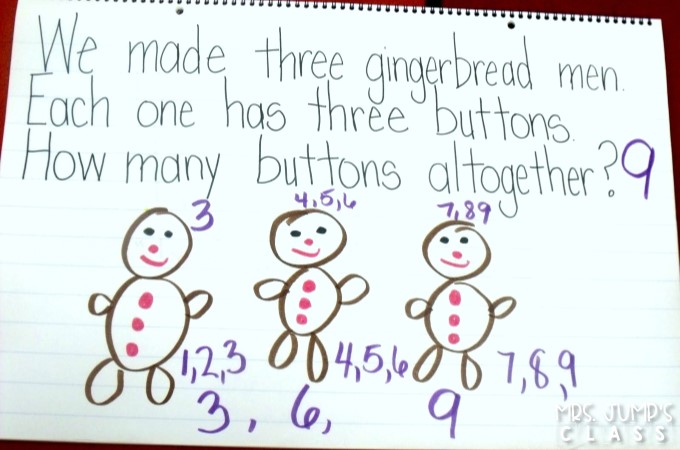 We made three gingerbread men.
Each one has three buttons.
How many buttons altogether? 9
3 4,5,6 7,89
1,2,3 4,5,6 7,8,9
3, 6, 9
MRS. JUMP'S
CLASS